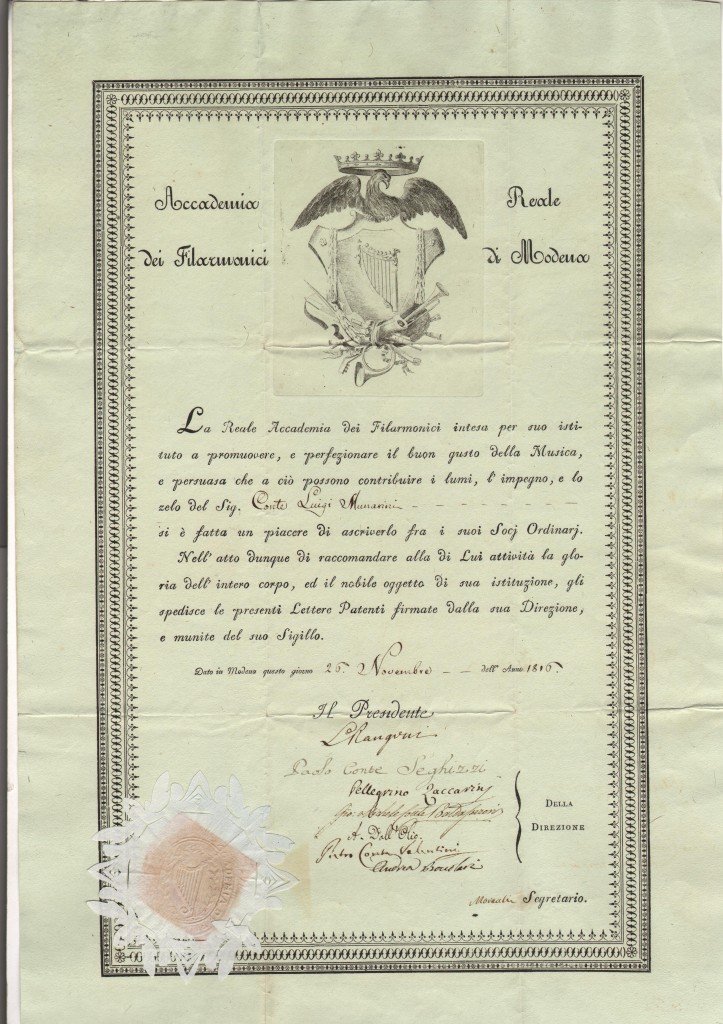 Accademia Reale
dei Filarmonici di Modena
La Reale Accademia dei Filarmonici intesa per suo isti-
tuto a promuovere, e perfezionare il buon gusto della Musica,
e persuasa che a ciò possono contribuire i lumi, l'impegno, e lo
zelo del Sig. Conte Luigi Munarini
si è fatta un piacere di ascriverlo fra i suoi Socj Ordinarj.
Nell'atto dunque di raccomandare alla di Lui attività la glo-
ria dell'intero corpo, ed il nobile oggetto di sua istituzione, gli
spedisce le presenti Lettere Patenti firmate dalla sua Direzione,
e munite del suo Sigillo.
Dato in Modena questo giorno 26. Novembre - - dell'Anno 1816.
Il Presidente
L Rangoni
Paolo Conte Seghizzi
Pellegrino Zaccarini
A. Dall'Olio
Pietro Conte Valentini
Andrea
Della
Direzione
Segretario.